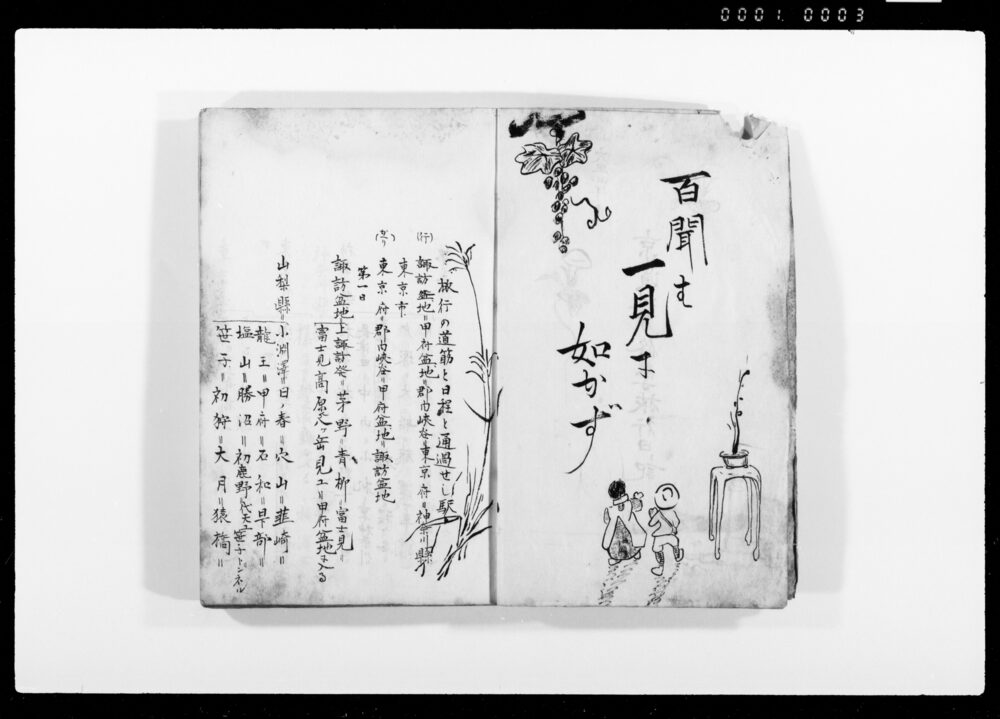 0001. 0003
百聞は
一見に
如かず
旅行の道筋と日程と通過せし駅
(行)
諏訪盆地=甲府盆地=郡内峡谷=東京府=神奈川縣
東京市
(かへり)
東京府=郡内峡谷=甲府盆地=諏訪盆地
第一日
諏訪盆地上諏訪発=茅野=青柳=富士見=
富士見高原八ヶ岳見ユ=甲府盆地に入る
山梨縣=小淵澤=日ノ春=穴山=韮崎=
龍王=甲府=石和=日下部=
塩山=勝沼=初鹿野=笹子トンネル
笹子=初狩=大月=猿橋=